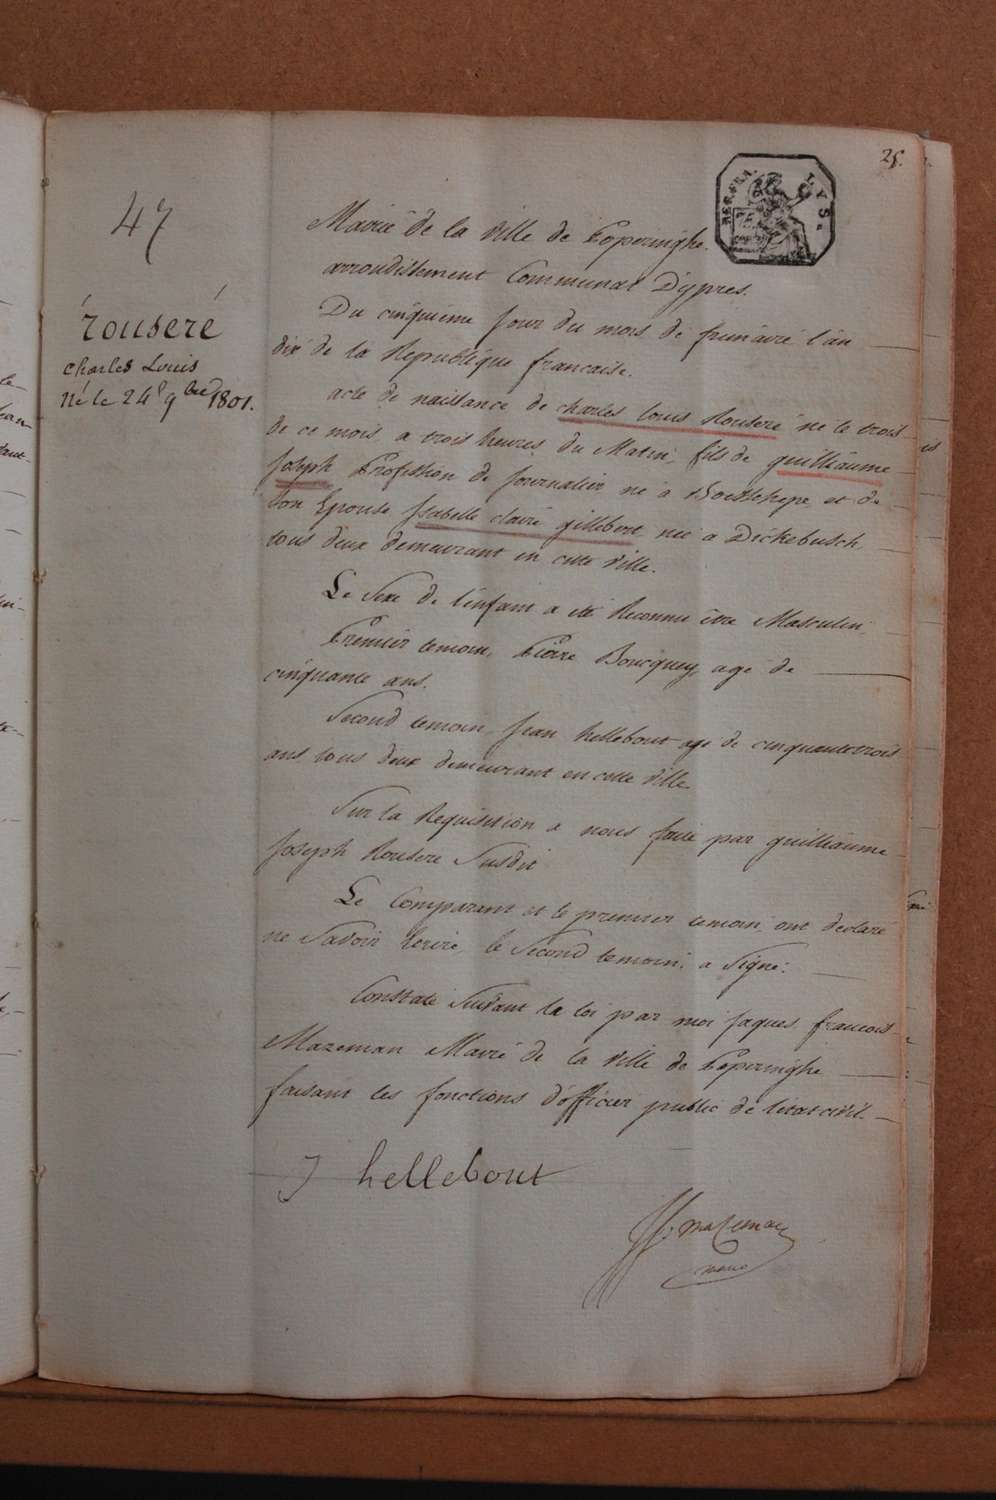 25.
REP. FRA.
LYS.
47
Mairie de la Ville de Poperinghe.
arrondissement Communal D'ypres.
Du cinquieme jour du mois de frimaire l'an
dix de la Republique francaise.
rousere
charles Louis
né le 24 9bre 1801.
acte de naissance de charles louis Rousere né le trois
de ce mois a trois heures du Matin, fils de guilliaume
Joseph Profession de Journalier né a Boesschepe et de
son Epouse Isabelle claire gillebert née a Dickebusch
tous deux demeurant en cette ville.
Le Sexe de l'enfant a été Reconnu être Masculin
Premier temoin, Pierre Boucquey agé de
cinquante ans.
Second temoin Jean hellebout agé de cinquante trois
ans tous deux demeurant en cette Ville
Sur la Requisition a nous faite par guilliaume
Joseph Rousere Susdit
Le Comparant et le premier temoin ont declaré
ne Savoir Ecrire, le Second temoin a Signé.
Constaté Suivant la loi par moi jaques francois
Mazeman Maire de la Ville de Poperinghe
faisant les fonctions d'officier public de l'etat civil
J hellebout
JF. Mazeman